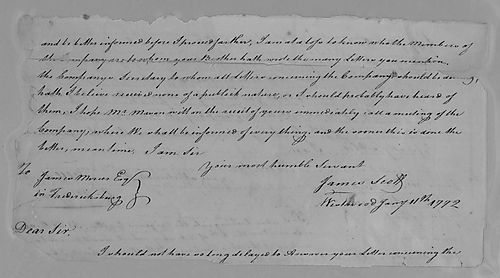 and be better informed before I proceed farther, I am at a loss to know who the Members of
the Company are to whom your Brother hath wrote the many Letters you mention.
the Company's Secretary to whom all Letters concerning the Company should
hath I believe received none of a publick nature, or I should probably have heard of
them, I hope Mr. Mercer will on the receit of yours immediately call a meeting of the
Company; where We shall be informed of every thing; and the sooner this is done the
better, mean time. I am Sir
Your most humble Servant
James Scott
To
James Mercer Esqr
in Fredericksburg
Westwood Jany 11th 1772
Dear Sir.
I should not have so long delayed to Answer your Letter concerning the